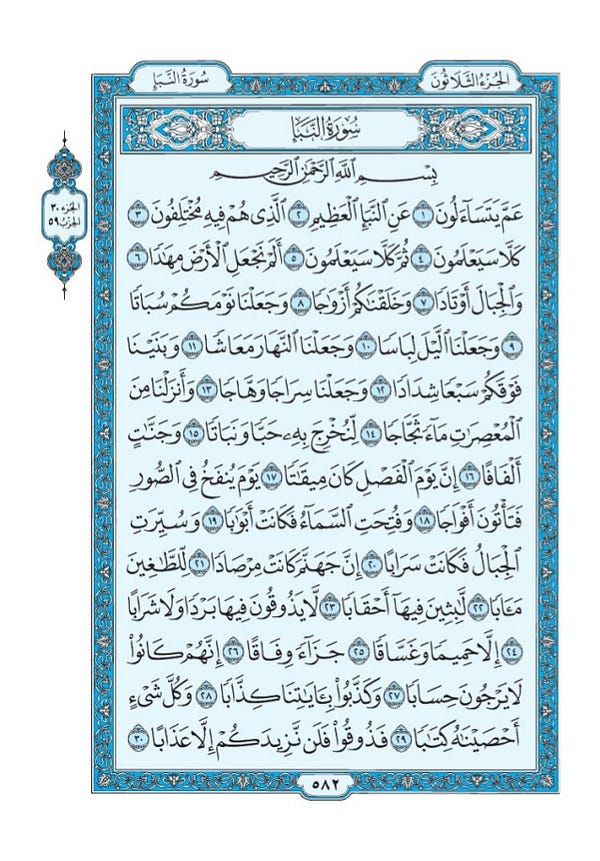 الجُزْءُ الثَّلَاثُونَ
سُورَةُ النَّبَإِ
سُورَةُ النَّبَإِ
بِسْمِ ٱللَّهِ ٱلرَّحْمَٰنِ ٱلرَّحِيمِ
عَمَّ يَتَسَآءَلُونَ ١ عَنِ ٱلنَّبَإِ ٱلْعَظِيمِ ٢ ٱلَّذِى هُمْ فِيهِ مُخْتَلِفُونَ ٣
كَلَّا سَيَعْلَمُونَ ٤ ثُمَّ كَلَّا سَيَعْلَمُونَ ٥ أَلَمْ نَجْعَلِ ٱلْأَرْضَ مِهَٰدًا ٦
وَٱلْجِبَالَ أَوْتَادًا ٧ وَخَلَقْنَٰكُمْ أَزْوَٰجًا ٨ وَجَعَلْنَا نَوْمَكُمْ سُبَاتًا
٩ وَجَعَلْنَا ٱلَّيْلَ لِبَاسًا ١٠ وَجَعَلْنَا ٱلنَّهَارَ مَعَاشًا ١١ وَبَنَيْنَا
فَوْقَكُمْ سَبْعًا شِدَادًا ١٢ وَجَعَلْنَا سِرَاجًا وَهَّاجًا ١٣ وَأَنزَلْنَا مِنَ
ٱلْمُعْصِرَٰتِ مَآءً ثَجَّاجًا ١٤ لِّنُخْرِجَ بِهِۦ حَبًّا وَنَبَاتًا ١٥ وَجَنَّٰتٍ
أَلْفَافًا ١٦ إِنَّ يَوْمَ ٱلْفَصْلِ كَانَ مِيقَٰتًا ١٧ يَوْمَ يُنفَخُ فِى ٱلصُّورِ
فَتَأْتُونَ أَفْوَاجًا ١٨ وَفُتِحَتِ ٱلسَّمَآءُ فَكَانَتْ أَبْوَٰبًا ١٩ وَسُيِّرَتِ
ٱلْجِبَالُ فَكَانَتْ سَرَابًا ٢٠ إِنَّ جَهَنَّمَ كَانَتْ مِرْصَادًا ٢١ لِّلطَّٰغِينَ
مَـَٔابًا ٢٢ لَّٰبِثِينَ فِيهَآ أَحْقَابًا ٢٣ لَّا يَذُوقُونَ فِيهَا بَرْدًا وَلَا شَرَابًا
٢٤ إِلَّا حَمِيمًا وَغَسَّاقًا ٢٥ جَزَآءً وِفَاقًا ٢٦ إِنَّهُمْ كَانُوا۟
لَا يَرْجُونَ حِسَابًا ٢٧ وَكَذَّبُوا۟ بِـَٔايَٰتِنَا كِذَّابًا ٢٨ وَكُلَّ شَىْءٍ
أَحْصَيْنَٰهُ كِتَٰبًا ٢٩ فَذُوقُوا۟ فَلَن نَّزِيدَكُمْ إِلَّا عَذَابًا ٣٠
٥٨٢
الجزء ٣٠
الحزب ٥٩